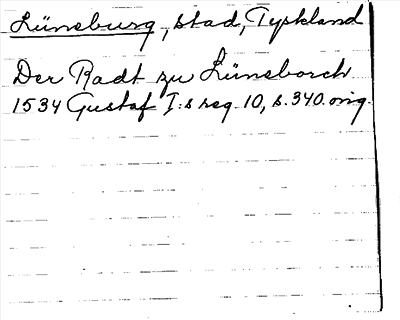 Lüneburg, stad, Tyskland
Der Radt zu Lüneborch
1534 Gustaf I:s reg. 10, s. 340. orig.